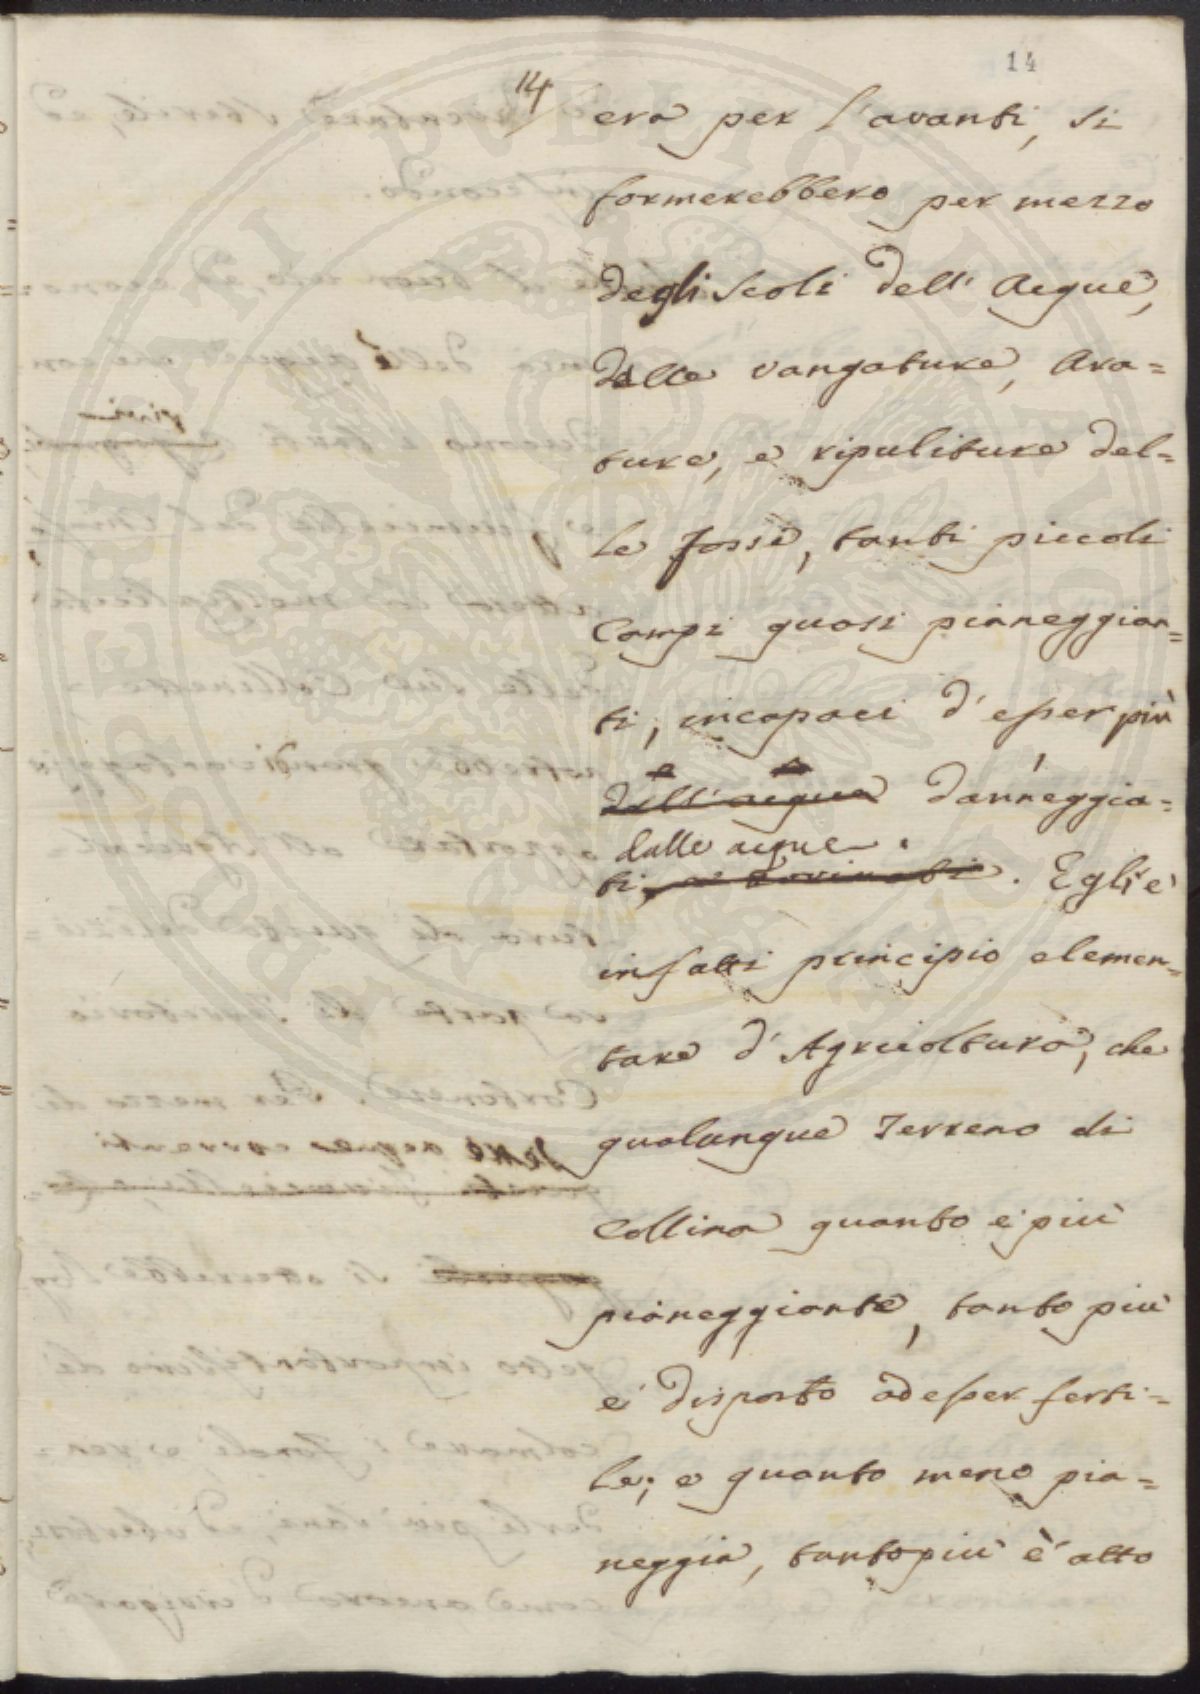 14
14
era per l'avanti, si
formerebbero per mezzo
degli scoli dell' Acque,
delle vangature, Ara=
ture, e ripuliture del=
le Fosse, tanti piccoli
Campi quasi pianeggian=
ti, incapaci d'esser più
dall'acque danneggia=
dalle acque.
ti, e rovinati. Egli è
infatti principio elemen=
tare d'Agricoltura, che
qualunque Terreno di
Collina quanto è più
pianeggiante, tanto più
è disposto ad esser ferti=
le; e quanto meno pia=
neggia, tanto più è atto